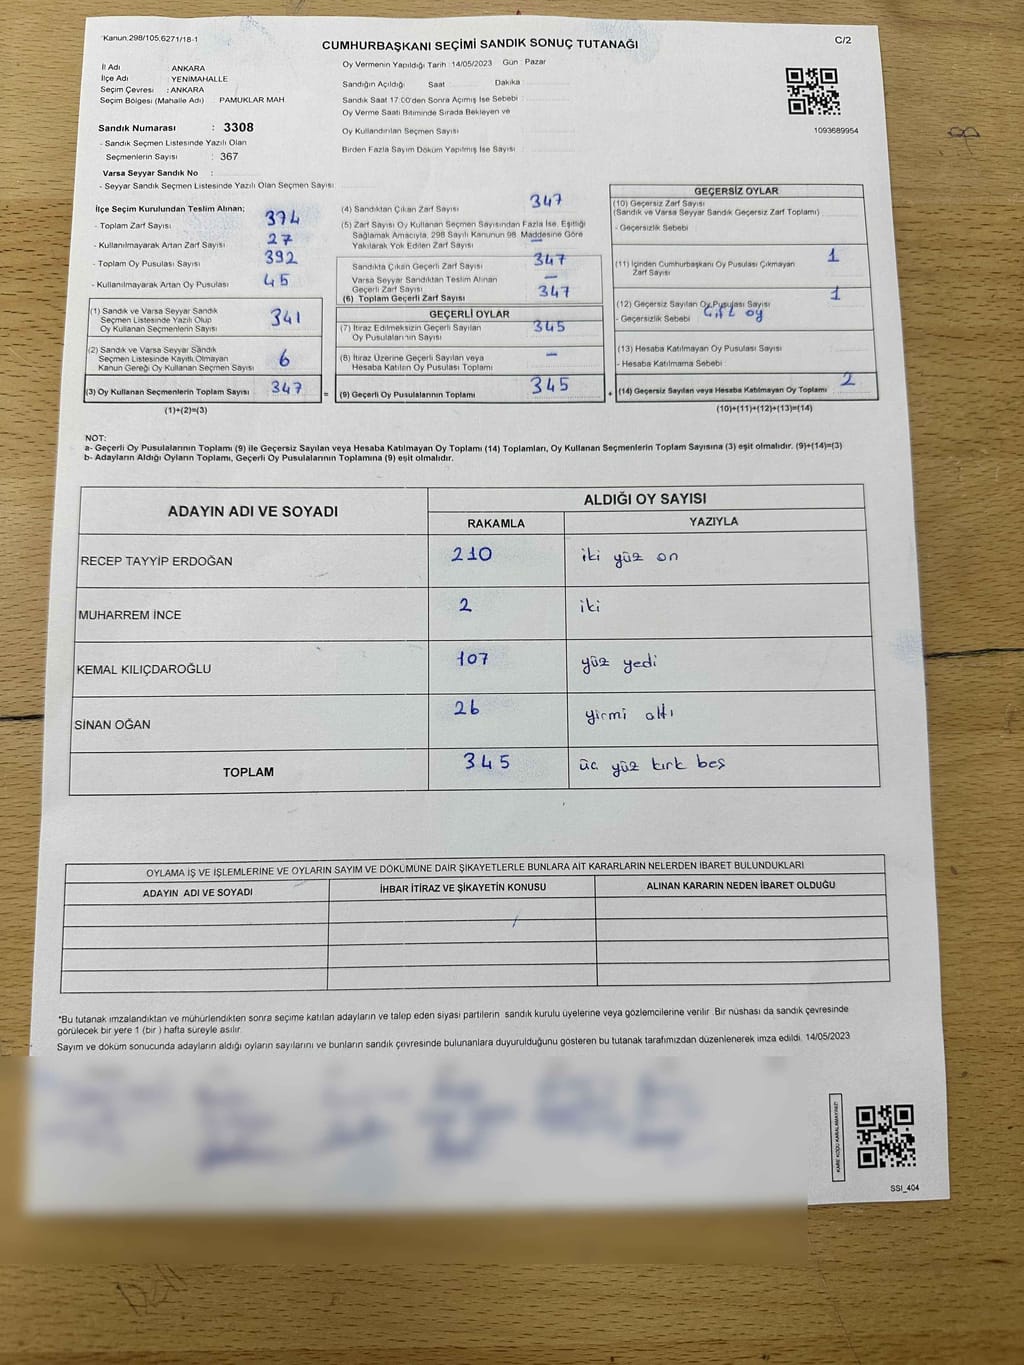 Kanun,298/105,6271/18-1
CUMHURBAŞKANI SEÇİMİ SANDIK SONUÇ TUTANAĞI
C/2
İl Adı : ANKARA
İlçe Adı : YENİMAHALLE
Seçim Çevresi : ANKARA
Seçim Bölgesi (Mahalle Adı) PAMUKLAR MAH
Sandık Numarası : 3308
- Sandık Seçmen Listesinde Yazılı Olan
Seçmenlerin Sayısı : 367
Varsa Seyyar Sandık No :
- Seyyar Sandık Seçmen Listesinde Yazılı Olan Seçmen Sayısı
Oy Vermenin Yapıldığı Tarih : 14/05/2023 Gün : Pazar
Sandığın Açıldığı Saat Dakika
Sandık Saat 17:00'den Sonra Açımış İse Sebebi
Oy Verme Saati Bitiminde Sırada Bekleyen ve
Oy Kullandırılan Seçmen Sayısı
Birden Fazla Sayım Döküm Yapılmış İse Sayısı
1093689954
İlçe Seçim Kurulundan Teslim Alınan;
- Toplam Zarf Sayısı 374
- Kullanılmayarak Artan Zarf Sayısı 27
- Toplam Oy Pusulası Sayısı 392
- Kullanılmayarak Artan Oy Pusulası 45
(1) Sandık ve Varsa Seyyar Sandık
Seçmen Listesinde Yazılı Olup
Oy Kullanan Seçmenlerin Sayısı 341
(2) Sandık ve Varsa Seyyar Sandık
Seçmen Listesinde Kayıtlı Olmayan
Kanun Gereği Oy Kullanan Seçmen Sayısı 6
(3) Oy Kullanan Seçmenlerin Toplam Sayısı 347
(1)+(2)=(3)
(4) Sandıktan Çıkan Zarf Sayısı 347
(5) Zarf Sayısı Oy Kullanan Seçmen Sayısından Fazla İse, Eşitliği
Sağlamak Amacıyla, 298 Sayılı Kanunun 98. Maddesine Göre
Yakılarak Yok Edilen Zarf Sayısı —
Sandıkta Çıkan Geçerli Zarf Sayısı 347
Varsa Seyyar Sandıktan Teslim Alınan
Geçerli Zarf Sayısı —
(6) Toplam Geçerli Zarf Sayısı 347
GEÇERLİ OYLAR
(7) İtiraz Edilmeksizin Geçerli Sayılan
Oy Pusulalarının Sayısı 345
(8) İtiraz Üzerine Geçerli Sayılan veya
Hesaba Katılan Oy Pusulası Toplamı —
= (9) Geçerli Oy Pusulalarının Toplamı 345
GEÇERSİZ OYLAR
(10) Geçersiz Zarf Sayısı
(Sandık ve Varsa Seyyar Sandık Geçersiz Zarf Toplamı)
- Geçersizlik Sebebi
(11) İçinden Cumhurbaşkanı Oy Pusulası Çıkmayan
Zarf Sayısı 1
(12) Geçersiz Sayılan Oy Pusulası Sayısı 1
- Geçersizlik Sebebi Çift oy
(13) Hesaba Katılmayan Oy Pusulası Sayısı
- Hesaba Katılmama Sebebi
+ (14) Geçersiz Sayılan veya Hesaba Katılmayan Oy Toplamı 2
(10)+(11)+(12)+(13)=(14)
NOT:
a- Geçerli Oy Pusulalarının Toplamı (9) ile Geçersiz Sayılan veya Hesaba Katılmayan Oy Toplamı (14) Toplamları, Oy Kullanan Seçmenlerin Toplam Sayısına (3) eşit olmalıdır. (9)+(14)=(3)
b- Adayların Aldığı Oyların Toplamı, Geçerli Oy Pusulalarının Toplamına (9) eşit olmalıdır.
ADAYIN ADI VE SOYADI
ALDIĞI OY SAYISI
RAKAMLA YAZIYLA
RECEP TAYYİP ERDOĞAN 210 iki yüz on
MUHARREM İNCE 2 iki
KEMAL KILIÇDAROĞLU 107 yüz yedi
SİNAN OĞAN 26 yirmi altı
TOPLAM 345 üç yüz kırk beş
OYLAMA İŞ VE İŞLEMLERİNE VE OYLARIN SAYIM VE DÖKÜMÜNE DAİR ŞİKAYETLERLE BUNLARA AİT KARARLARIN NELERDEN İBARET BULUNDUKLARI
ADAYIN ADI VE SOYADI İHBAR İTİRAZ VE ŞİKAYETİN KONUSU ALINAN KARARIN NEDEN İBARET OLDUĞU
*Bu tutanak imzalandıktan ve mühürlendikten sonra seçime katılan adayların ve talep eden siyasi partilerin sandık kurulu üyelerine veya gözlemcilerine verilir. Bir nüshası da sandık çevresinde
görülecek bir yere 1 (bir ) hafta süreyle asılır.
Sayım ve döküm sonucunda adayların aldığı oyların sayılarını ve bunların sandık çevresinde bulunanlara duyurulduğunu gösteren bu tutanak tarafımızdan düzenlenerek imza edildi. 14/05/2023
KARE KODU KARALAMAYINIZ!
SSİ_404